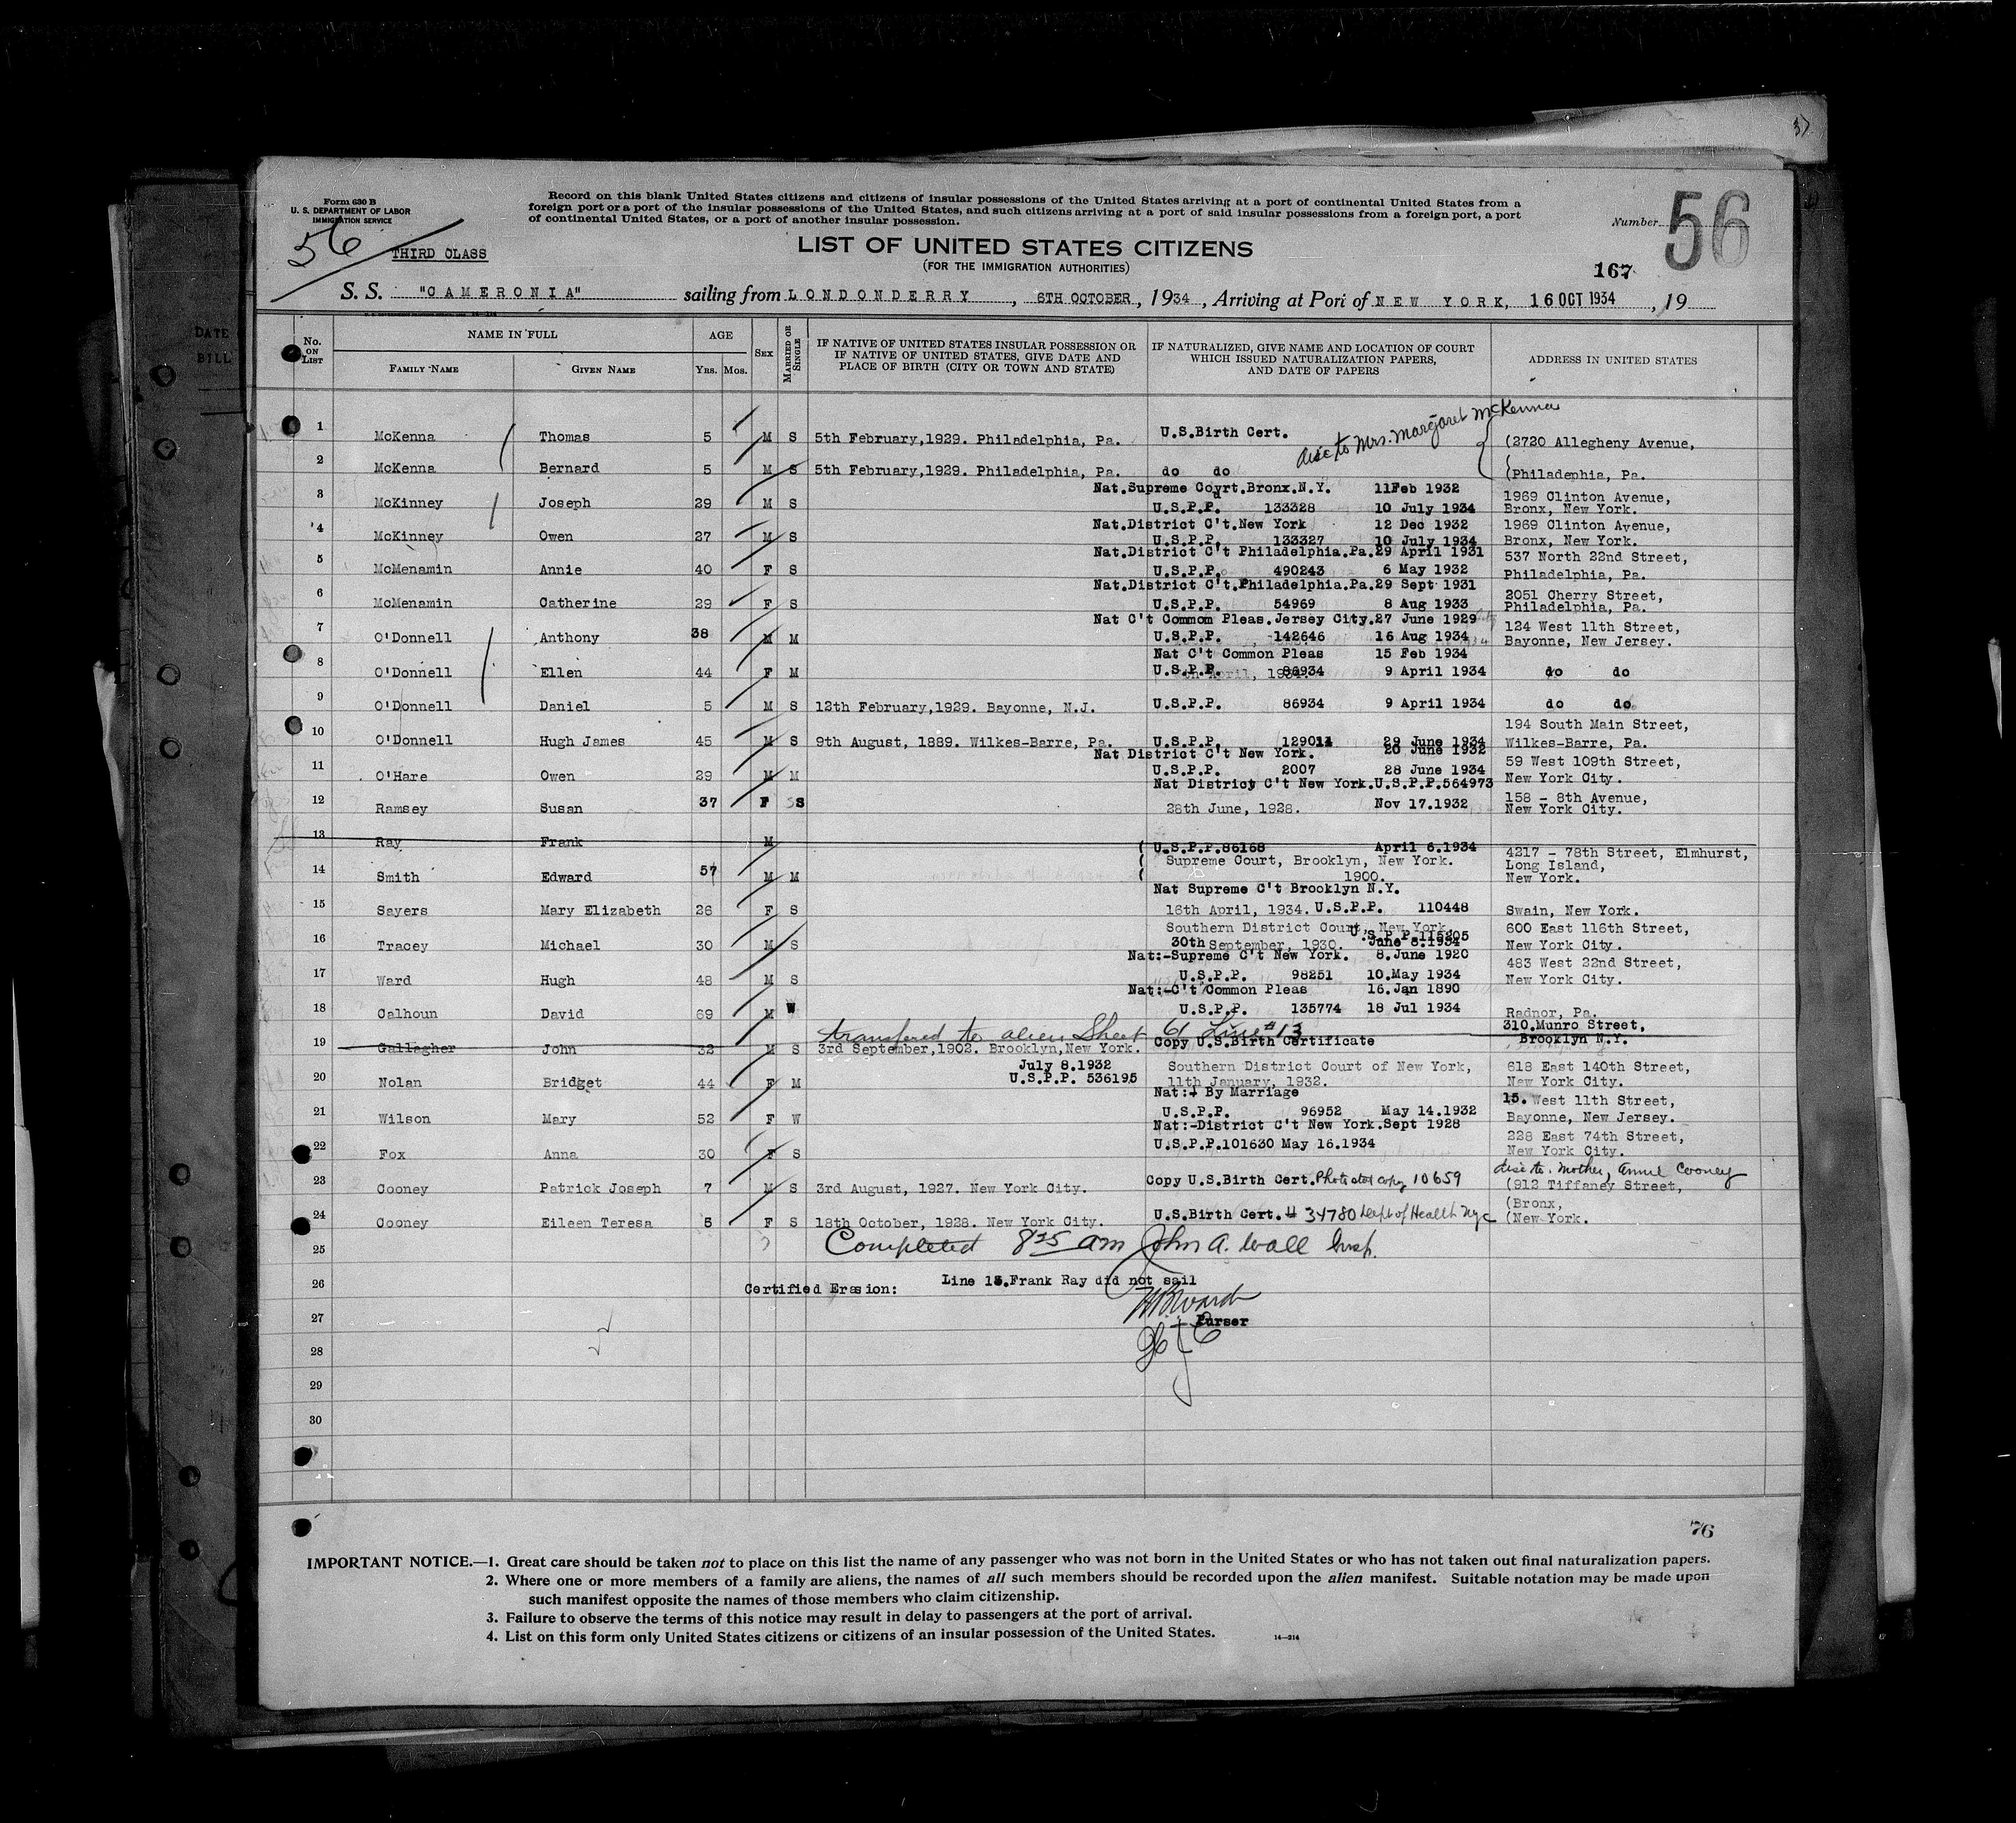 Form 630 B
U. S. DEPARTMENT OF LABOR
IMMIGRATION SERVICE
Record on this blank United States citizens and citizens of insular possessions of the United States arriving at a port of continental United States from a
foreign port or a port of the insular possessions of the United States, and such citizens arriving at a port of said insular possessions from a foreign port, a port
of continental United States, or a port of another insular possession.
Number 56
56
THIRD CLASS
LIST OF UNITED STATES CITIZENS
(FOR THE IMMIGRATION AUTHORITIES)
167
S. S. "CAMERONIA" sailing from LONDONDERRY, 6TH OCTOBER, 1934, Arriving at Port of NEW YORK, 16 OCT 1934, 19
DATE
BILL
No. ON LIST
NAME IN FULL
FAMILY NAME
GIVEN NAME
AGE
YRS. MOS.
SEX
MARRIED OR SINGLE
IF NATIVE OF UNITED STATES INSULAR POSSESSION OR
IF NATIVE OF UNITED STATES, GIVE DATE AND
PLACE OF BIRTH (CITY OR TOWN AND STATE)
IF NATURALIZED, GIVE NAME AND LOCATION OF COURT
WHICH ISSUED NATURALIZATION PAPERS,
AND DATE OF PAPERS
ADDRESS IN UNITED STATES
disc to Mrs. Margaret McKenna
1 McKenna Thomas 5 M S 5th February,1929. Philadelphia, Pa. U.S.Birth Cert. (2720 Allegheny Avenue,
2 McKenna Bernard 5 M S 5th February,1929. Philadelphia, Pa. do do (Philadephia, Pa.
Nat.Supreme Court.Bronx.N.Y. 11Feb 1932 1969 Clinton Avenue,
3 McKinney Joseph 29 M S U.S.P.P. 133328 10 July 1934 Bronx, New York.
Nat.District C't.New York 12 Dec 1932 1969 Clinton Avenue,
4 McKinney Owen 27 M S U.S.P.P. 133327 10 July 1934 Bronx, New York.
Nat.District C't Philadelphia.Pa.29 April 1931 537 North 22nd Street,
5 McMenamin Annie 40 F S U.S.P.P. 490243 6 May 1932 Philadelphia, Pa.
Nat.District C't.Philadelphia.Pa.29 Sept 1931 2051 Cherry Street,
6 McMenamin Catherine 29 F S U.S.P.P. 54969 8 Aug 1933 Philadelphia, Pa.
Nat C't Commom Pleas.Jersey City.27 June 1929 124 West 11th Street,
7 O'Donnell Anthony 38 M M U.S.P.P. 142646 16 Aug 1934 Bayonne, New Jersey.
Nat C't Common Pleas 15 Feb 1934
8 O'Donnell Ellen 44 F M U.S.P.P. 86934 9 April 1934 do do
9 O'Donnell Daniel 5 M S 12th February,1929. Bayonne, N.J. U.S.P.P. 86934 9 April 1934 do do
194 South Main Street,
10 O'Donnell Hugh James 45 M S 9th August, 1889. Wilkes-Barre, Pa. U.S.P.P. 129011 29 June 1934 Wilkes-Barre, Pa.
Nat District C't New York. 20 June 1932 59 West 109th Street,
11 O'Hare Owen 29 M M U.S.P.P. 2007 28 June 1934 New York City.
Nat District C't New York.U.S.P.P.564973 158 - 8th Avenue,
12 Ramsey Susan 37 F S 28th June, 1928. Nov 17.1932 New York City.
13 Ray Frank M
(U.S.P.P.86168 April 6.1934 4217 - 78th Street, Elmhurst,
( Supreme Court, Brooklyn, New York. Long Island,
14 Smith Edward 57 M M ( 1900. New York.
Nat Supreme C't Brooklyn N.Y.
15 Sayers Mary Elizabeth 26 F S 16th April, 1934. U.S.P.P. 110448 Swain, New York.
Southern District Court, New York. 600 East 116th Street,
U.S.P.P.
16 Tracey Michael 30 M S 30th September, 1930. June 8.1934 New York City.
Nat:-Supreme C't New York. 8.June 1920 483 West 22nd Street,
17 Ward Hugh 48 M S U.S.P.P. 98251 10.May 1934 New York City.
Nat:-C't Common Pleas 16.Jan 1890
18 Calhoun David 69 M W U.S.P.P. 135774 18 Jul 1934 Radnor, Pa.
transfered to alien Sheet 61 Line #13 310.Munro Street,
19 Gallagher John 32 M S 3rd September,1902. Brooklyn,New York. Copy U.S.Birth Certificate Brooklyn N.Y.
July 8.1932 Southern District Court of New York, 618 East 140th Street,
20 Nolan Bridget 44 F M U.S.P.P. 536195 11th January, 1932. New York City.
Nat:- By Marriage 15. West 11th Street,
21 Wilson Mary 52 F W U.S.P.P. 96952 May 14.1932 Bayonne, New Jersey.
Nat:-District C't New York.Sept 1928 228 East 74th Street,
22 Fox Anna 30 F S U.S.P.P.101630 May 16.1934 New York City.
disc to. Mother, Annie Cooney
23 Cooney Patrick Joseph 7 M S 3rd August, 1927. New York City. Copy U.S.Birth Cert. Photostat copy 10659 (912 Tiffaney Street,
(Bronx,
24 Cooney Eileen Teresa 5 F S 18th October, 1928. New York City. U.S.Birth Cert. # 34780 Dept of Health NYC (New York.
25 Completed 8 25 am John A. Wall Insp.
26 Certified Erasion: Line 13.Frank Ray did not sail
27 Purser
28
29
30
76
IMPORTANT NOTICE.—1. Great care should be taken not to place on this list the name of any passenger who was not born in the United States or who has not taken out final naturalization papers.
2. Where one or more members of a family are aliens, the names of all such members should be recorded upon the alien manifest. Suitable notation may be made upon
such manifest opposite the names of those members who claim citizenship.
3. Failure to observe the terms of this notice may result in delay to passengers at the port of arrival.
4. List on this form only United States citizens or citizens of an insular possession of the United States.
14—214